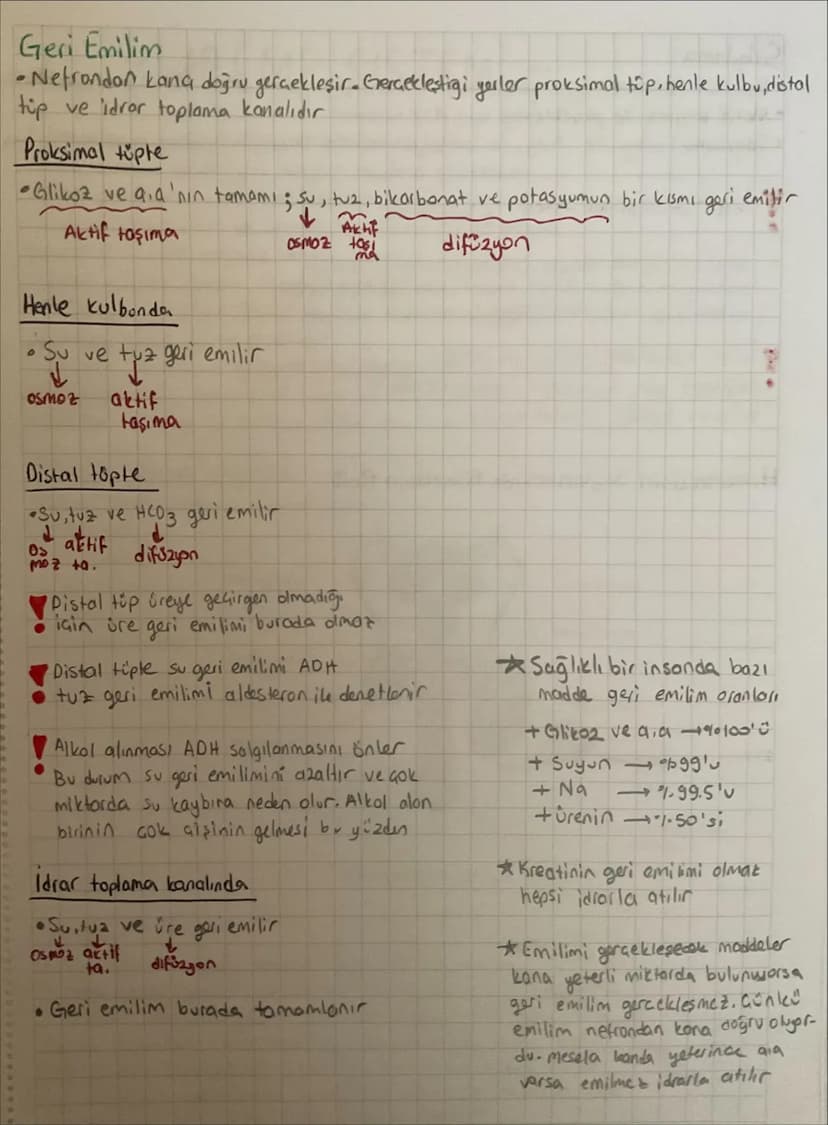 Geri Emilim
• Nefrondan kana doğru gerçekleşir. Gerçekleştiği yerler proksimal tüp, henle kulbu, distal
tüp ve idrar toplama kanalıdır
Proksimal tüpte
• Glikoz ve a.a'nın tamamı ; su, tuz, bikarbonat ve potasyumun bir kısmı geri emilir
Aktif taşıma
osmoz
Aktif
taşı
ma
difüzyon
Henle kulbunda
• Su ve tuz geri emilir
osmoz
aktif
taşıma
Distal tüpte
• Su, tuz ve HCO3 geri emilir
os
moz
aktif
ta.
difüzyon
! Distal tüp üreye geçirgen olmadığı
için üre geri emilimi burada olmaz
! Distal tüpte su geri emilimi ADH
tuz geri emilimi aldesteron ile denetlenir
! Alkol alınması ADH salgılanmasını önler
Bu durum su geri emilimini azaltır ve çok
miktarda su kaybına neden olur. Alkol alan
birinin çok çişinin gelmesi bu yüzden
İdrar toplama kanalında
• Su, tuz ve üre geri emilir
osmoz
aktif
ta.
difüzyon
• Geri emilim burada tamamlanır
★ Sağlıklı bir insanda bazı
madde geri emilim oranları
+ Glikoz ve a.a → %100'ü
+ Suyun → %99'u
+ Na → %99.5'u
+ Ürenin → %50'si
★ Kreatinin geri emilimi olmaz
hepsi idrarla atılır
★ Emilimi gerçekleşecek maddeler
kana yeterli miktarda bulunuyorsa
geri emilim gerçekleşmez. Çünkü
emilim nefrondan kana doğru oluyor-
du. mesela kanda yeterince a.a
varsa emilmez idrarla atılır